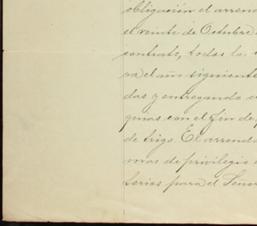 obligación el arrend
el veinte de Octubre
contrato, todas la
va el año siguiente
das y entregando e
guas con el fin de
de trigo. El arrenda
mos de privilegio
torias para el Señor